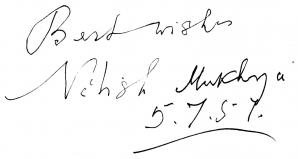 Best wishes
Nitish Mukherji
5.7.57.